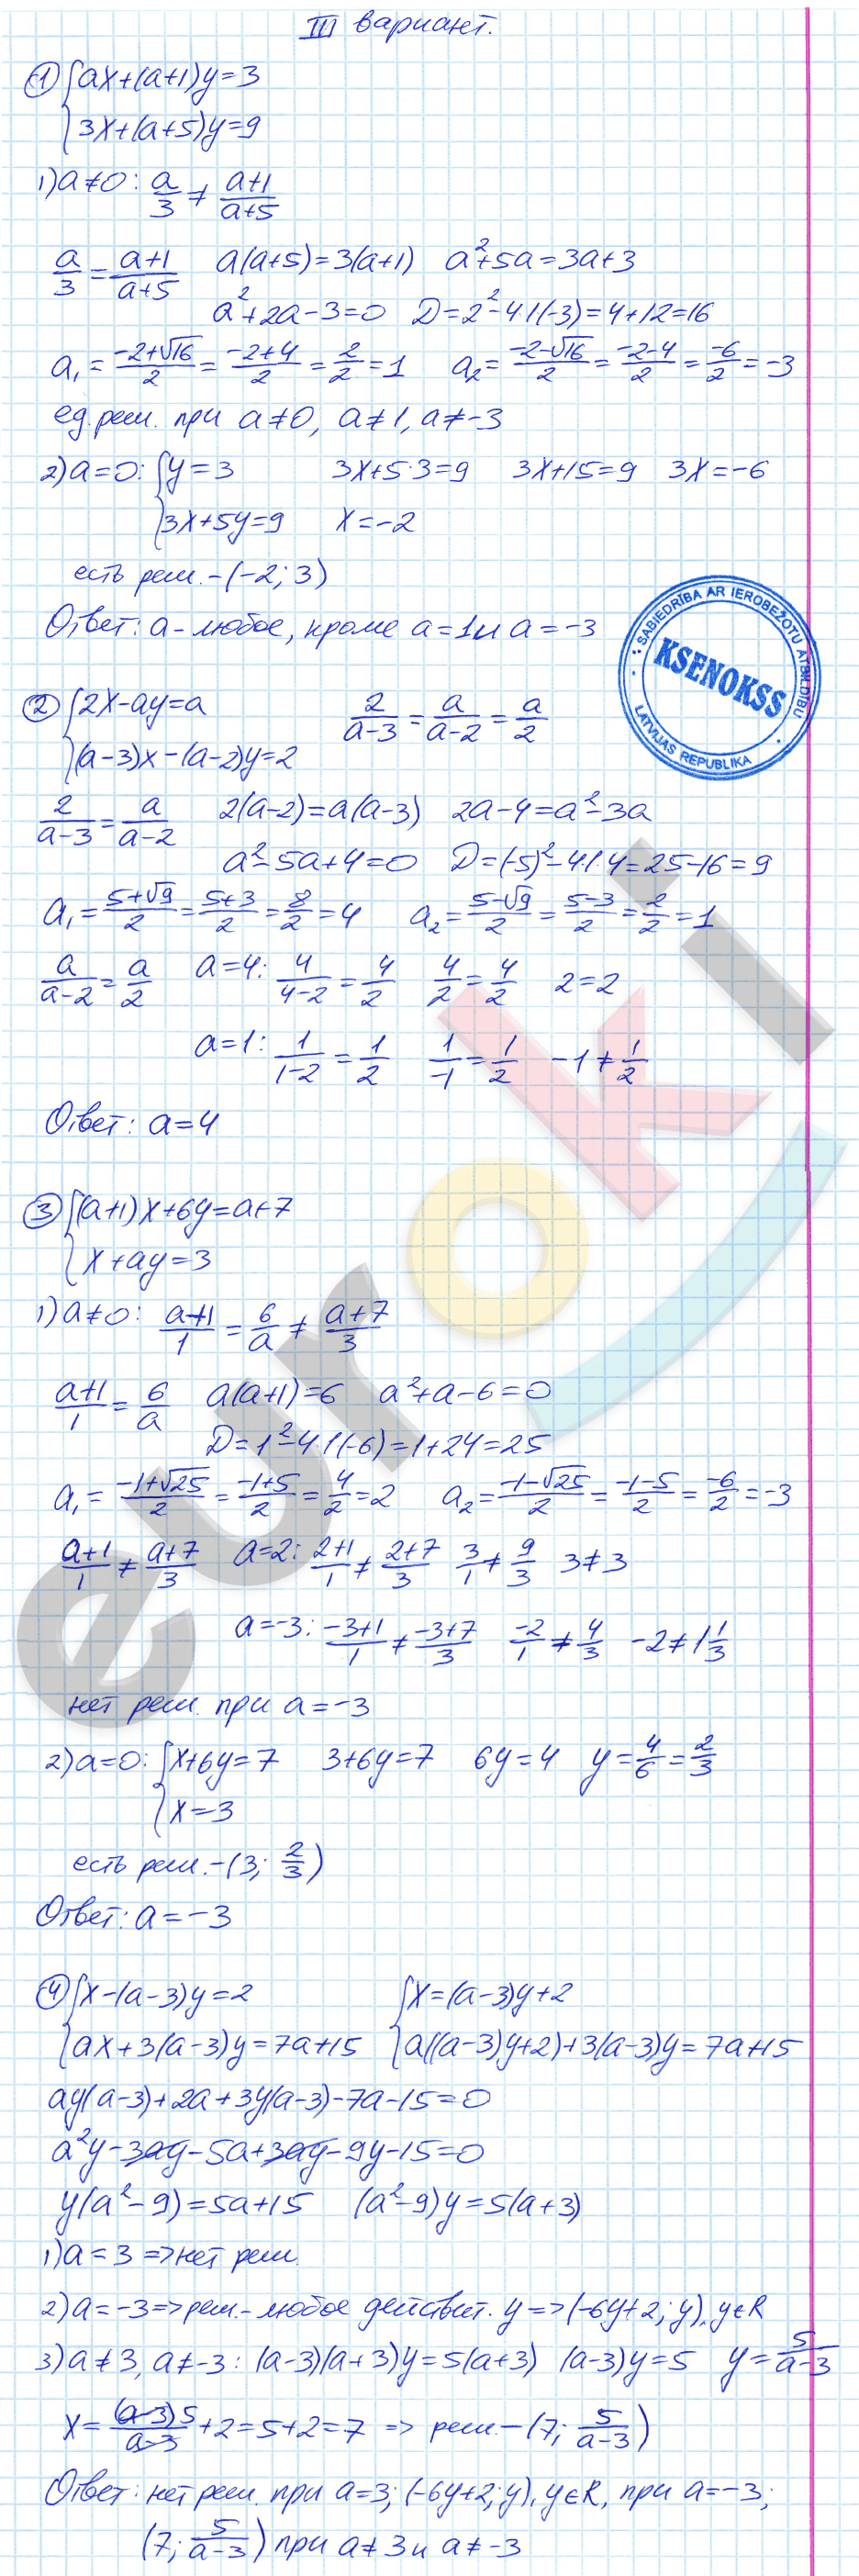 III вариант.
① {ax+(a+1)y=3
{3x+(a+5)y=9
1) a≠0: a/3 ≠ (a+1)/(a+5)
a/3 = (a+1)/(a+5) a(a+5)=3(a+1) a²+5a=3a+3
a²+2a-3=0 D=2²-4·1·(-3)=4+12=16
a₁ = (-2+√16)/2 = (-2+4)/2 = 2/2 = 1 a₂ = (-2-√16)/2 = (-2-4)/2 = -6/2 = -3
ед. реш. при a≠0, a≠1, a≠-3
2) a=0: {y=3 3x+5·3=9 3x+15=9 3x=-6
{3x+5y=9 x=-2
есть реш. - (-2; 3)
Ответ: a - любое, кроме a=1 и a=-3
SABIEDRĪBA AR IEROBEŽOTU ATBILDĪBU
KSENOKSS
LATVIJAS REPUBLIKA
② {2x-ay=a 2/(a-3) = a/(a-2) = a/2
{(a-3)x-(a-2)y=2
2/(a-3) = a/(a-2) 2(a-2)=a(a-3) 2a-4=a²-3a
a²-5a+4=0 D=(-5)²-4·1·4=25-16=9
a₁ = (5+√9)/2 = (5+3)/2 = 8/2 = 4 a₂ = (5-√9)/2 = (5-3)/2 = 2/2 = 1
a/(a-2) = a/2 a=4: 4/(4-2) = 4/2 4/2 = 4/2 2=2
a=1: 1/(1-2) = 1/2 1/-1 = 1/2 -1≠1/2
Ответ: a=4
③ {(a+1)x+6y=a+7
{x+ay=3
1) a≠0: (a+1)/1 = 6/a ≠ (a+7)/3
(a+1)/1 = 6/a a(a+1)=6 a²+a-6=0
D=1²-4·1·(-6)=1+24=25
a₁ = (-1+√25)/2 = (-1+5)/2 = 4/2 = 2 a₂ = (-1-√25)/2 = (-1-5)/2 = -6/2 = -3
(a+1)/1 ≠ (a+7)/3 a=2: (2+1)/1 ≠ (2+7)/3 3/1 ≠ 9/3 3≠3
a=-3: (-3+1)/1 ≠ (-3+7)/3 -2/1 ≠ 4/3 -2≠1 1/3
нет реш. при a=-3
2) a=0: {x+6y=7 3+6y=7 6y=4 y=4/6=2/3
{x=3
есть реш. - (3; 2/3)
Ответ: a=-3
④ {x-(a-3)y=2 {x=(a-3)y+2
{ax+3(a-3)y=7a+15 {a((a-3)y+2)+3(a-3)y=7a+15
ay(a-3)+2a+3y(a-3)-7a-15=0
a²y-3ay-5a+3ay-9y-15=0
y(a²-9)=5a+15 (a²-9)y=5(a+3)
1) a=3 => нет реш.
2) a=-3 => реш. - любое действит. y => (-6y+2; y), y∈R
3) a≠3, a≠-3: (a-3)(a+3)y=5(a+3) (a-3)y=5 y=5/(a-3)
x = (a-3)5/(a-3) +2=5+2=7 => реш. - (7; 5/(a-3))
Ответ: нет реш. при a=3; (-6y+2; y), y∈R, при a=-3;
(7; 5/(a-3)) при a≠3 и a≠-3
euroki